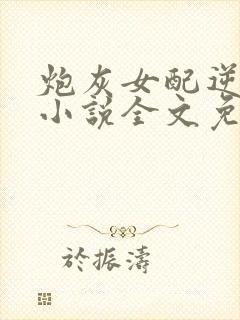 炮灰女配逆
小說全文免
於振濤